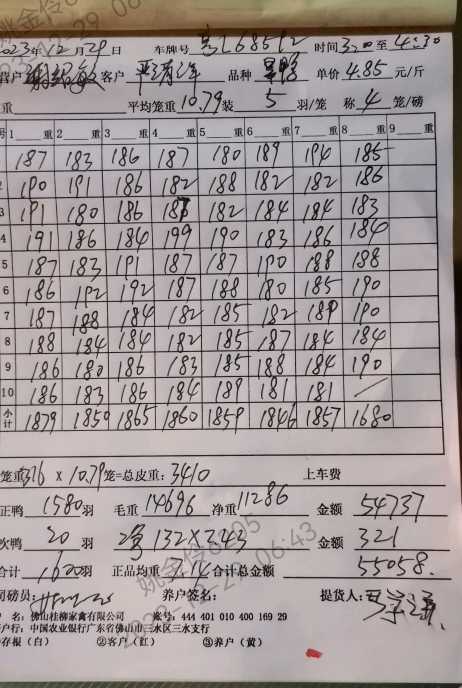 2023年12月29日 车牌号 时间3:00至4:30
客户 品种 单价4.85元/斤
重 平均笼重10.79装 5 羽/笼 称 4 笼/磅
号 1 重 2 重 3 重 4 重 5 重 6 重 7 重 8 重 9 重
187 183 186 187 180 189 194 185
2 190 191 186 182 188 182 182 186
3 191 180 186 187 182 184 184 183
4 191 186 184 199 190 183 186 184
5 187 183 191 187 187 190 188 188
6 186 192 192 187 188 180 185 190
7 187 188 184 182 185 182 189 190
8 188 184 184 182 185 187 184 184
9 186 180 186 183 185 188 184 190
10 186 183 186 184 189 181 181
小计 1879 1850 1865 1860 1859 1846 1857 1680
笼重316 × 10.79笼=总皮重:3410 上车费
正鸭 1580羽 毛重 14696 净重 11286 金额 54737
次鸭 20 羽 132×2.43 金额 321
合计 1600羽 正品均重 7.14 合计总金额 55058.
司磅员: 养户签名: 提货人:
名: 佛山桂柳家禽有限公司 账号: 444 401 010 400 169 29
户行: 中国农业银行广东省佛山市三水区三水支行
①存根(白) ②客户(红) ③养户(黄)